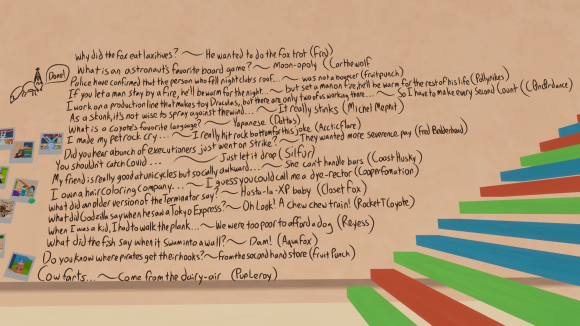 Done!
Why did the fox eat laxitives? ~ He wanted to do the fox trot (Fred)
What is an astronaut's favorite board game? ~ Moon-opoly (Corthewolf
Police have confirmed that the person who fell nightclub's roof... ~ was not a bouncer (fruit punch)
If you let a man stay by a fire, he'll be warm for the night... ~ but set a man on fire, he'll be warm for the rest of his life (Pollynikes)
I work on a production line that makes toy Draculas, but there are only two of us working there... ~ So I have to make every second Count (C.Pondardance)
As a skunk, it's not wise to spray against the wind... ~ It really stinks (Michel Mephit)
What is a coyote's favorite language? ~ Yapanese (Dottos)
I made my pet rock cry... ~ I really hit rock bottom for this joke (Arcticflare)
Did you hear a bunch of executioners just went on Strike? ~ They wanted more severence pay (Fred Bolderboard)
You shouldn't catch Covid... ~ Just let it drop (Silfur)
My friend is really good at unicycles but socially awkward... ~ She can't handle bars (Coast Husky)
I own a hair coloring company... ~ I guess you could call me a dye-rector (Cooperfomation)
What did an older version of the Terminator say? ~ Hosta-la-XP baby (Closet Fox)
What did Godzilla say when he saw a Tokyo Express? ~ Oh Look! A Chew chew train! (RocketTCoyote)
When I was a kid, I had to walk the plank... ~ We were too poor to afford a dog (Reyess)
What did the fish say when it swam into a wall? ~ Dam! (Aquafox)
Do you know where pirates get their hooks? ~ from the second hand store (Fruit Punch)
Cow farts... ~ Come from the dairy-air (PupLeroy)